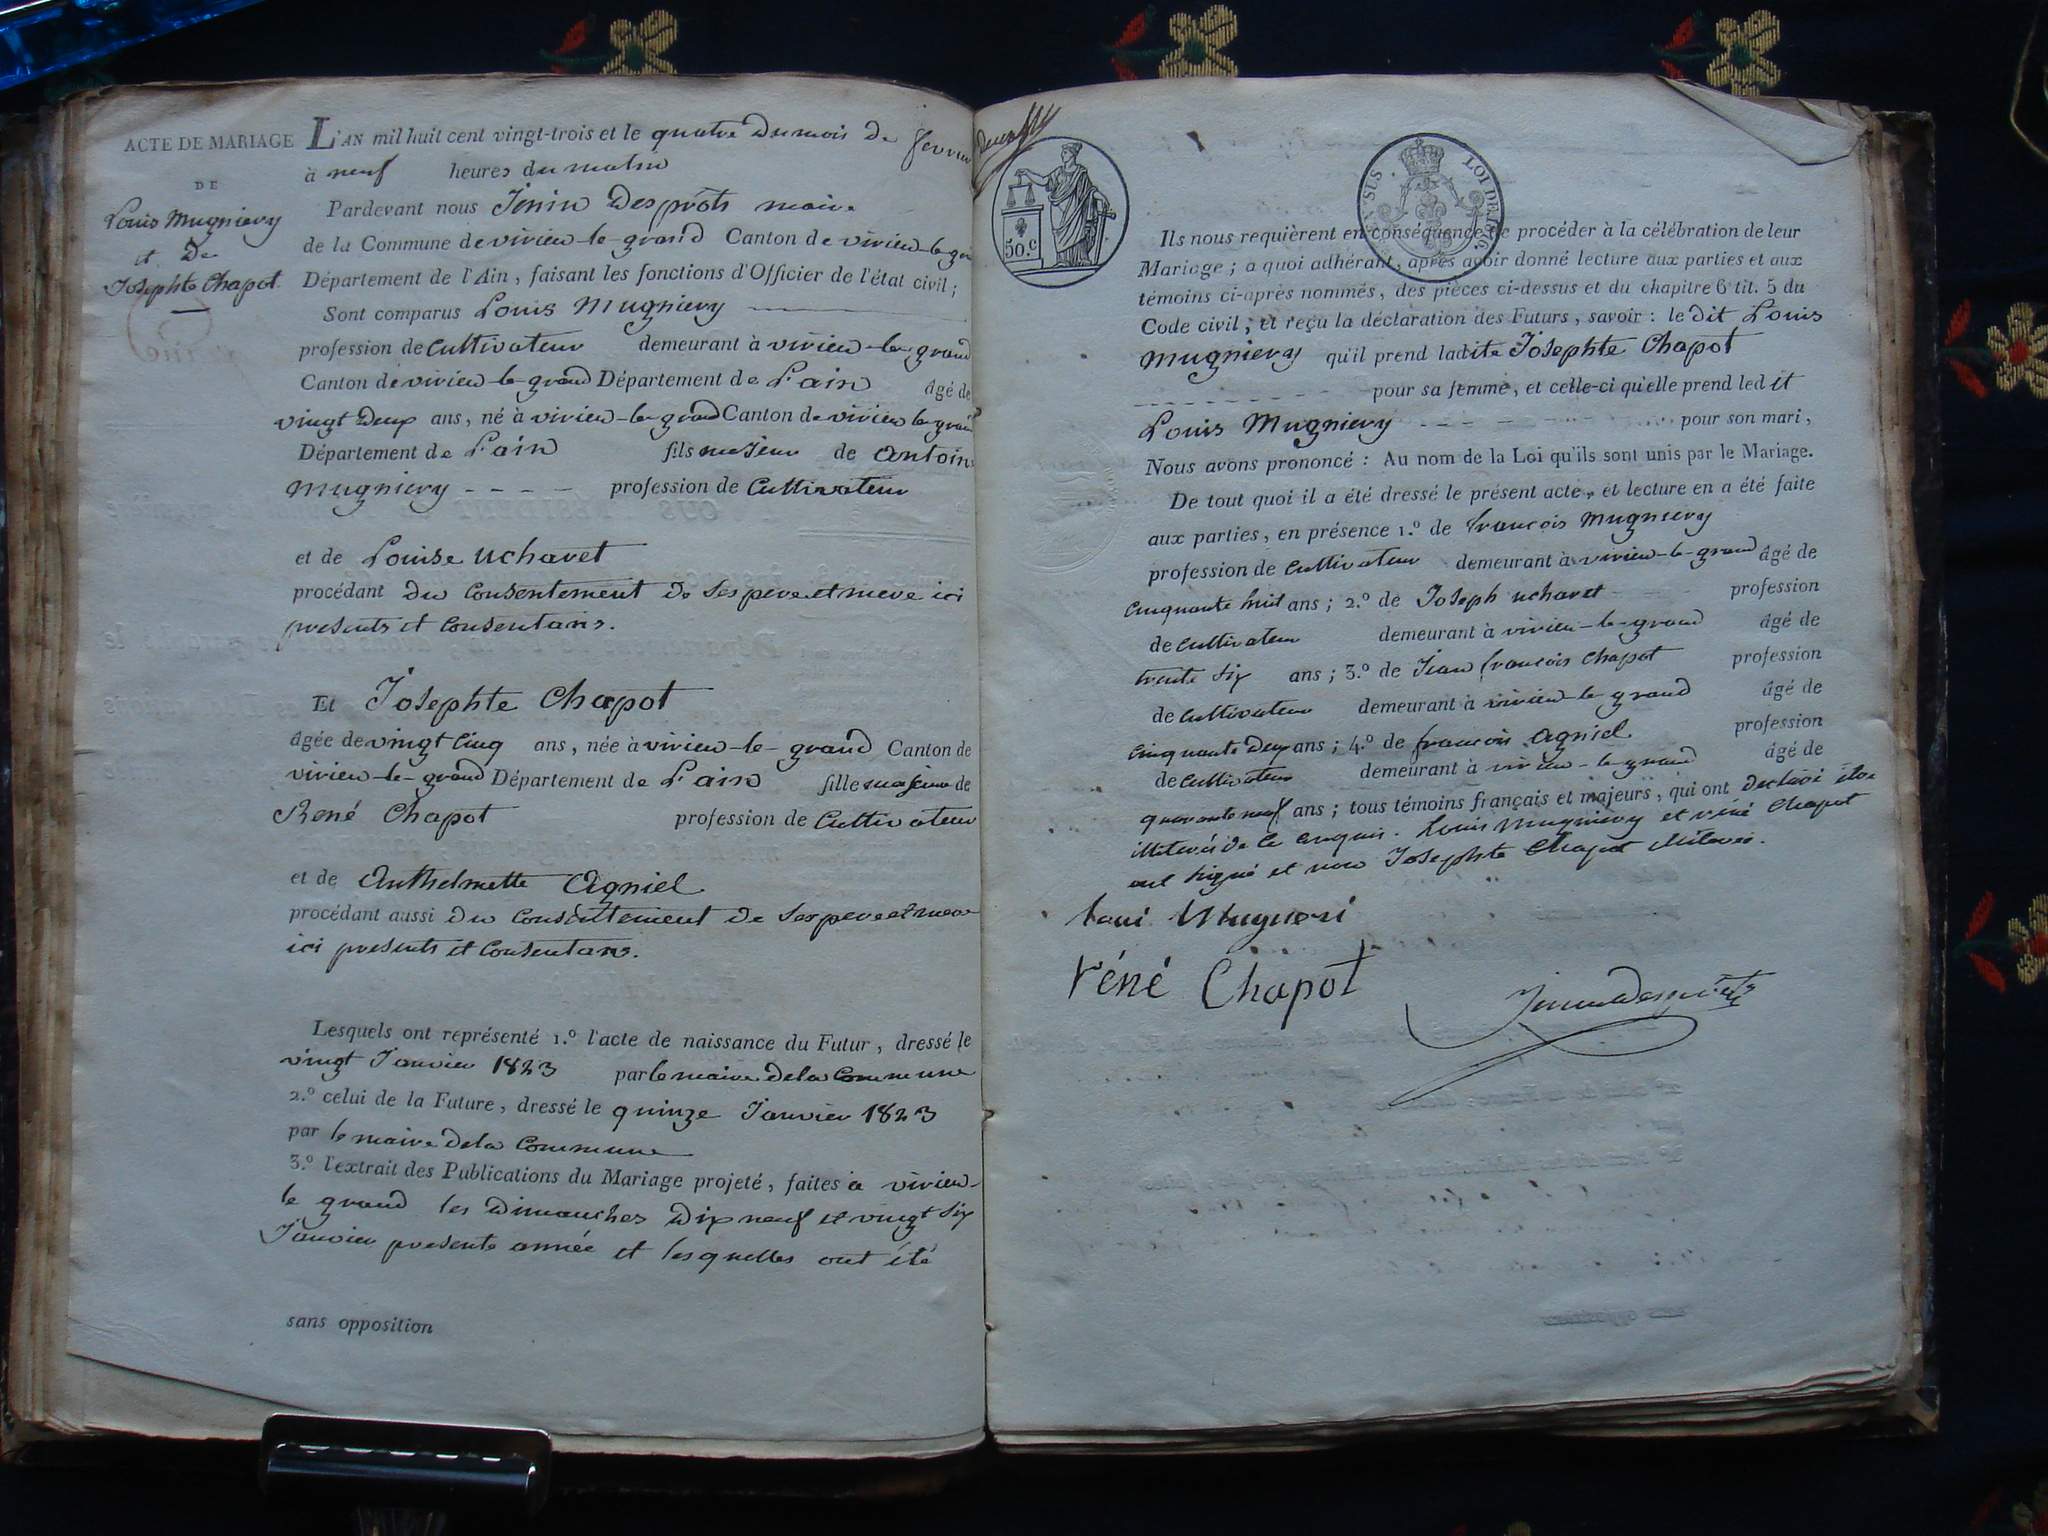 ACTE DE MARIAGE
DE
Louis Mugniery
et De
Josephte Chapot.
L'AN mil huit cent vingt-trois et le quatre du mois de fevrier
à neuf heures du matin
Pardevant nous Jenin Desprôts maire
de la Commune de virieu-le-grand Canton de virieu-le-gr
Département de l'Ain, faisant les fonctions d'Officier de l'état civil;
Sont comparus Louis Mugniery
profession de Cultivateur demeurant à virieu-le-grand
Canton de virieu-le-grand Département de L'ain âgé de
vingt deux ans, né à virieu-le-grand Canton de virieu le grand
Département de L'ain fils majeur de Antoine
Mugniery - - - - profession de Cultivateur
et de Louise uchavet
procédant du Consentement de ses pere et mere ici
presents et Consentans.
Et Josephte Chapot
âgée de vingt Cinq ans, née à virieu-le-grand Canton de
virieu-le-grand Département de L'ain fille majeure de
René Chapot profession de Cultivateur
et de Anthelmette Agniel
procédant aussi du Consentement de ses pere et mere
ici presents et Consentans.
Lesquels ont représenté 1.º l'acte de naissance du Futur, dressé le
vingt Janvier 1823 par le maire de la Commune
2.º celui de la Future, dressé le quinze Janvier 1823
par le maire de la Commune
3.º l'extrait des Publications du Mariage projeté, faites a virieu-
le grand les Dimanches Dix neuf et vingt six
Janvier presente année et lesquelles ont été
sans opposition
50.c
LOI DE 1816.
Ils nous requièrent en conséquence de procéder à la célébration de leur
Mariage; a quoi adhérant, après avoir donné lecture aux parties et aux
témoins ci-après nommés, des pièces ci-dessus et du chapitre 6 tit. 5 du
Code civil, et reçu la déclaration des Futurs, savoir: le dit Louis
Mugniery qu'il prend ladite Josephte Chapot
pour sa femme, et celle-ci qu'elle prend ledit
Louis Mugniery - - - - pour son mari,
Nous avons prononcé: Au nom de la Loi qu'ils sont unis par le Mariage.
De tout quoi il a été dressé le présent acte, et lecture en a été faite
aux parties, en présence 1.º de françois Mugniery
profession de Cultivateur demeurant à virieu-le-grand âgé de
cinquante huit ans; 2.º de Joseph uchavet profession
de Cultivateur demeurant à virieu-le-grand âgé de
trente six ans; 3.º de Jean françois Chapot profession
de Cultivateur demeurant à virieu-le-grand âgé de
cinquante deux ans; 4.º de françois Agniel profession
de Cultivateur demeurant à virieu-le-grand âgé de
quarante neuf ans; tous témoins français et majeurs, qui ont declaré être
illiterés de ce enquis. Louis Mugniery et réné Chapot
ont signé et non Josephte Chapot illiterée.
loui Mugneri
réné Chapot
Jenin Desprôts